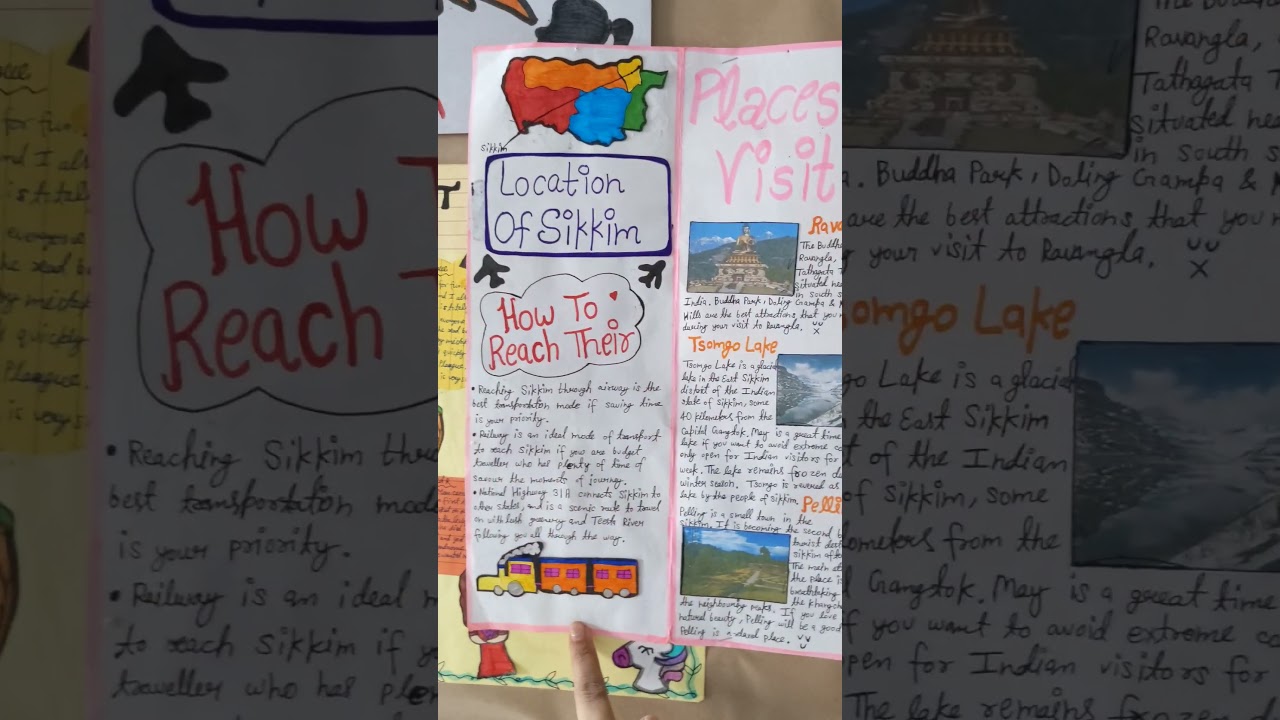 sikkim
Location
Of Sikkim
How To
Reach Their
• Reaching Sikkim through airway is the
best transportation mode if saving time
is your priority.
• Railway is an ideal mode of transport
to reach Sikkim if you are budget
traveller who has plenty of time of
savour the moments of journey.
• National Highway 31A connects Sikkim to
other states, and is a scenic route to travel
on with lush greenery and Teesta River
following you all through the way.
Places
Visit
Rava
The Buddha
Ravangla,
Tathagata T
situated nea
in South S
India. Buddha Park, Doling Gompa &
Hills are the best attractions, that you
during your visit to Ravangla.
Tsomgo Lake
Tsomgo Lake is a glacial
lake in the East Sikkim
district of the Indian
state of Sikkim, some
40 kilometers from the
Capital Gangtok. May is a great time
lake if you want to avoid extreme co
only open for Indian visitors for
week. The lake remains frozen d
winter season. Tsongo is revered as
lake by the people of sikkim.
Pelli
Pelling is a small town in the
Sikkim. It is becoming the second
tourist dest
sikkim aft
The main at
the place is
breathtaking
the Khangch
the neighbouring peaks. If you love
natural beauty, Pelling will be a good
Pelling is a ideal place.
How T
Reach T
• Reaching Sikkim thr
best transportation mode
is your priority.
• Railway is an ideal m
to reach Sikkim if y
traveller who has plen
The Budd
Ravangla,
Tathagata T
situated nea
in South S
a. Buddha Park, Doling Gampa &
are the best attractions that you
your visit to Ravangla.
omgo Lake
go Lake is a glacial
the East Sikkim
t of the Indian
of Sikkim, some
ometers from the
Gangtok. May is a great time
f you want to avoid extreme co
pen for Indian visitors for
The lake remains fro